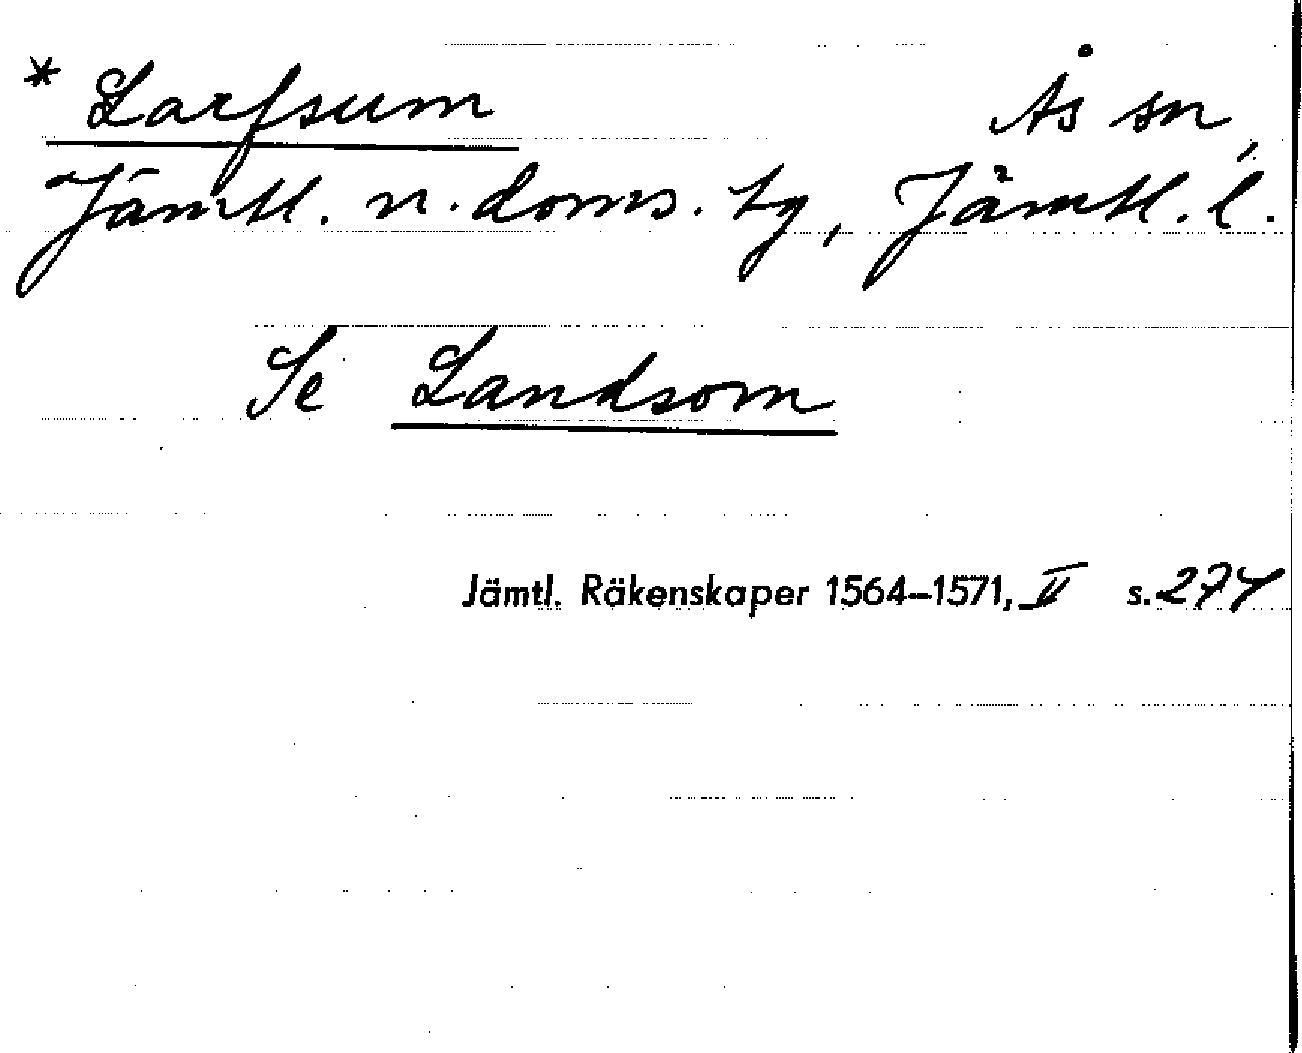 * Larfsum Ås sn,
Jämtl. n. doms. tg, Jämtl. l.
Se Landsom
Jämtl. Räkenskaper 1564–1571, II s. 274